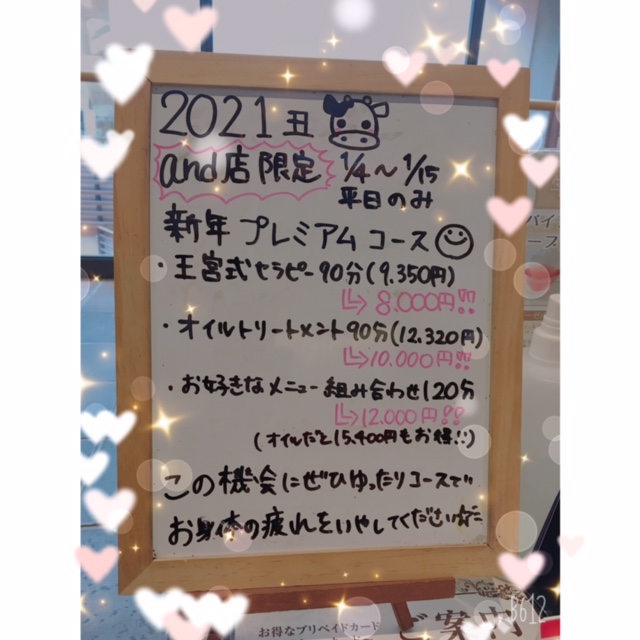 2021丑
and店限定 1/4～1/15
平日のみ
新年プレミアムコース
・王宮式セラピー90分(9.350円)
↳8.000円!!
・オイルトリートメント90分(12.320円)
↳10.000円!!
・お好きなメニュー組み合わせ120分
↳12.000円!!
(オイルだと15.400円もお得!!)
この機会にぜひゆったりコースで
お身体の疲れをいやしてください☆
お得なプリペイドカード
ご案内
B612